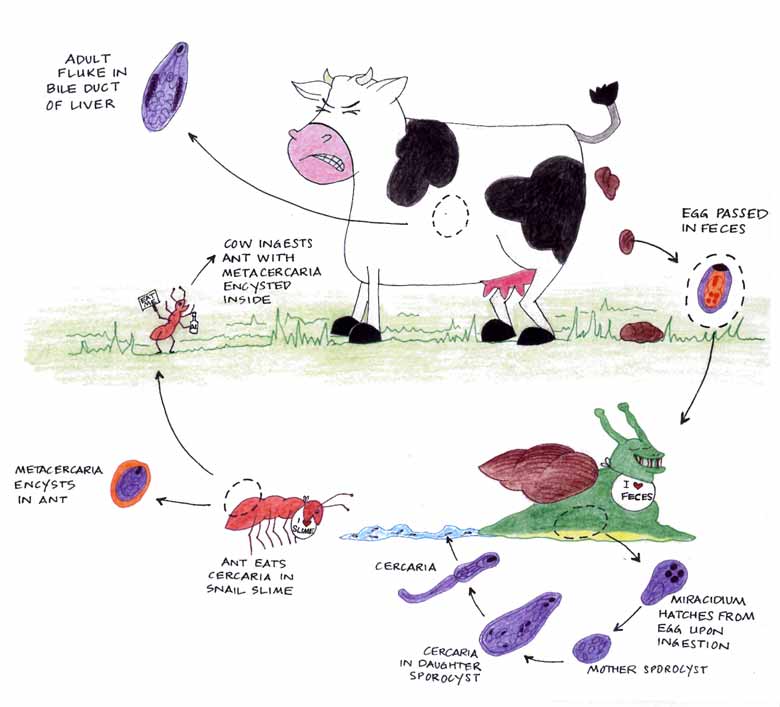 ADULT
FLUKE IN
BILE DUCT
OF LIVER
EGG PASSED
IN FECES
COW INGESTS
ANT WITH
METACERCARIA
ENCYSTED
INSIDE
EAT
ME
METACERCARIA
ENCYSTS
IN ANT
I ♥
SLIME
ANT EATS
CERCARIA IN
SNAIL SLIME
I ♥
FECES
CERCARIA
MIRACIDIUM
HATCHES FROM
EGG UPON
INGESTION
MOTHER SPOROCYST
CERCARIA
IN DAUGHTER
SPOROCYST